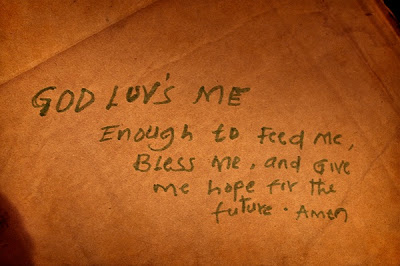 GOD LUV'S ME
Enough to Feed Me,
Bless Me, and Give
me hope for the
future. Amen